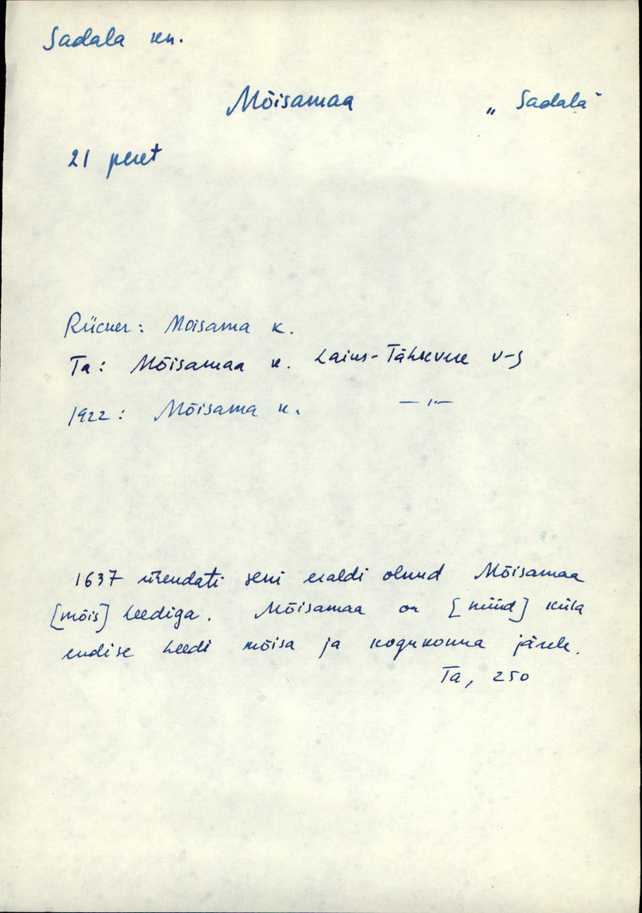 Sadala kn.
Mõisamaa „Sadala”
21 peret
Rücker: Moisama k.
Ta: Mõisamaa k. Laius-Tähkvere v-s
1922: Mõisama k. —„—
1637 ühendati seni eraldi olnud Mõisamaa
[mõis] Leediga. Mõisamaa on [nüüd] küla
endise Leedi mõisa ja kogukonna järele.
Ta, 250